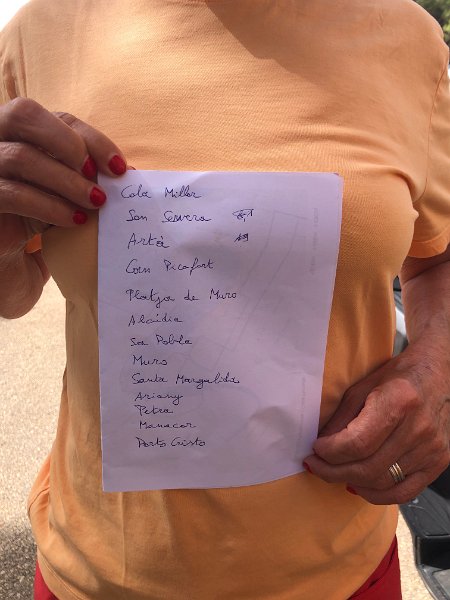 Cala Millor
Son Servera
Artà
Can Picafort
Platja de Muro
Alcúdia
Sa Pobla
Muro
Santa Margalida
Ariany
Petra
Manacor
Porto Cristo